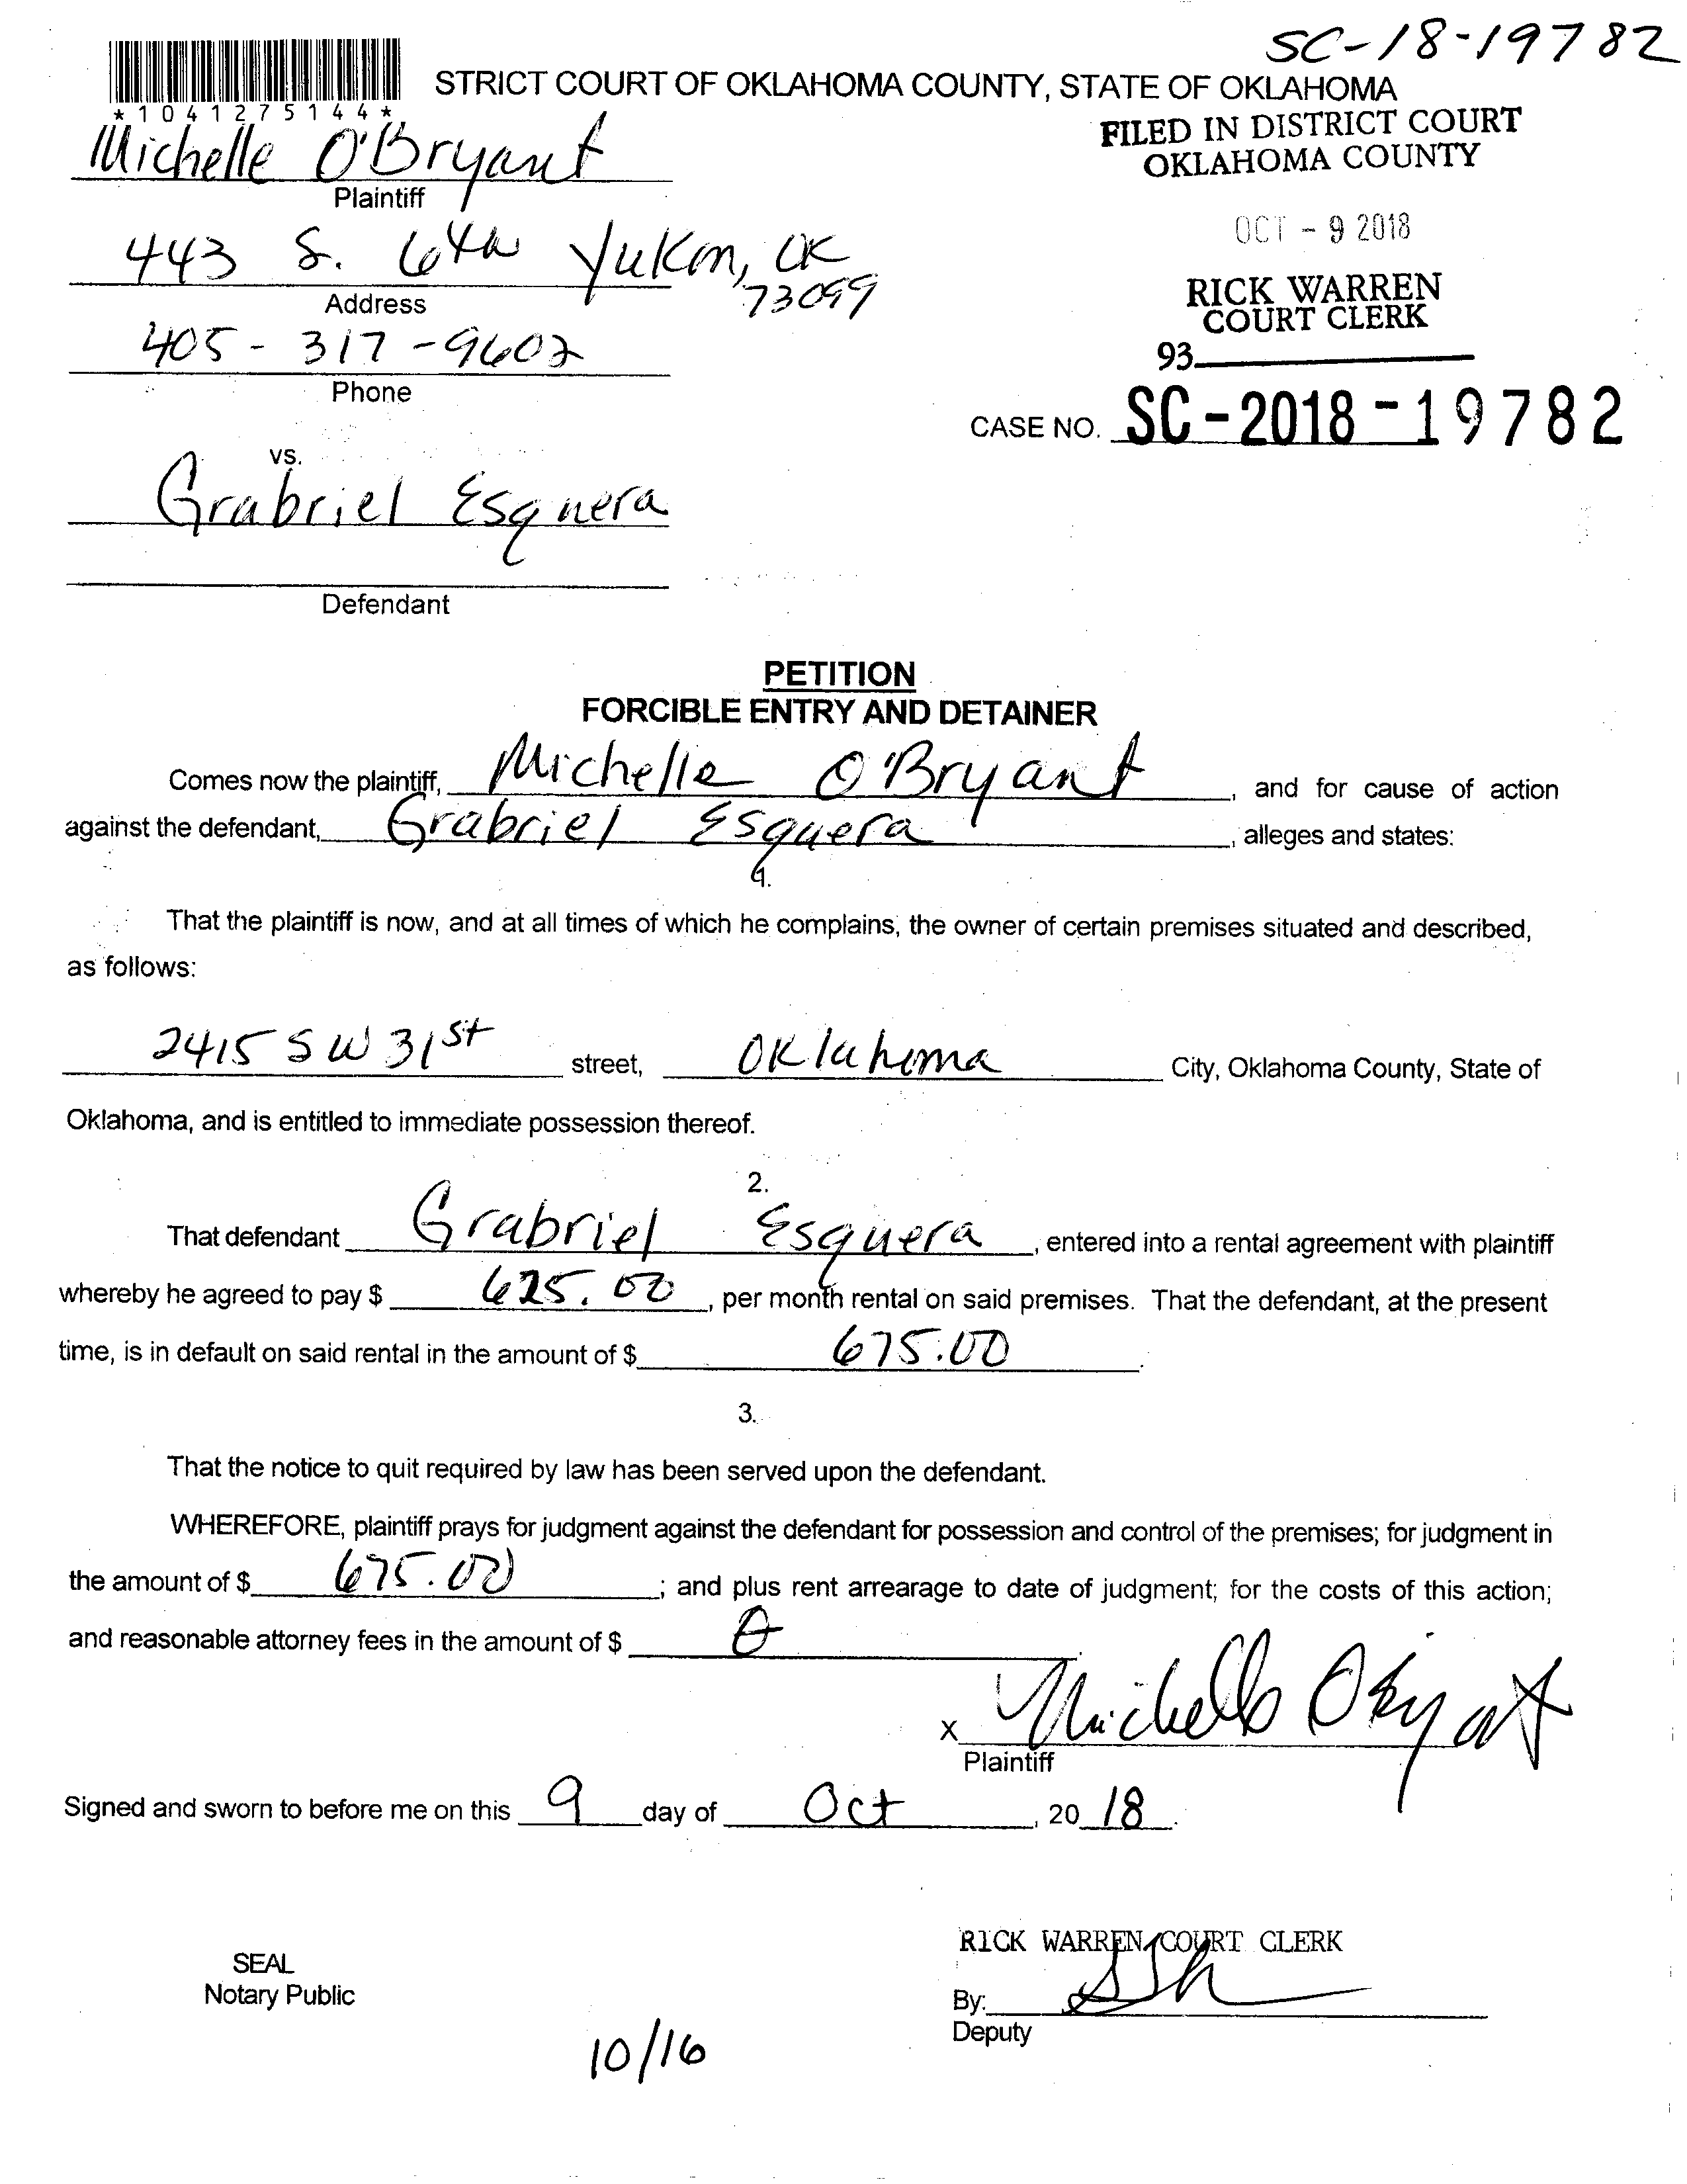 SC-18-19782
STRICT COURT OF OKLAHOMA COUNTY, STATE OF OKLAHOMA
*1041275144*
FILED IN DISTRICT COURT
OKLAHOMA COUNTY
Michelle O'Bryant
Plaintiff
OCT - 9 2018
443 S. 6th Yukon, OK
73099
Address
RICK WARREN
COURT CLERK
405-317-9602
93
Phone
CASE NO. SC-2018-19782
vs.
Grabriel Esquera
Defendant
PETITION
FORCIBLE ENTRY AND DETAINER
Comes now the plaintiff, Michelle O'Bryant, and for cause of action
against the defendant, Grabriel Esquera, alleges and states:
1.
That the plaintiff is now, and at all times of which he complains, the owner of certain premises situated and described,
as follows:
2415 SW 31st street, Oklahoma City, Oklahoma County, State of
Oklahoma, and is entitled to immediate possession thereof.
2.
That defendant Grabriel Esquera, entered into a rental agreement with plaintiff
whereby he agreed to pay $ 625.00, per month rental on said premises. That the defendant, at the present
time, is in default on said rental in the amount of $ 675.00.
3.
That the notice to quit required by law has been served upon the defendant.
WHEREFORE, plaintiff prays for judgment against the defendant for possession and control of the premises; for judgment in
the amount of $ 675.00; and plus rent arrearage to date of judgment; for the costs of this action;
and reasonable attorney fees in the amount of $ 0.
x Michelle O'Bryant
Plaintiff
Signed and sworn to before me on this 9 day of Oct, 2018.
RICK WARREN, COURT CLERK
SEAL
Notary Public
By:
Deputy
10/16